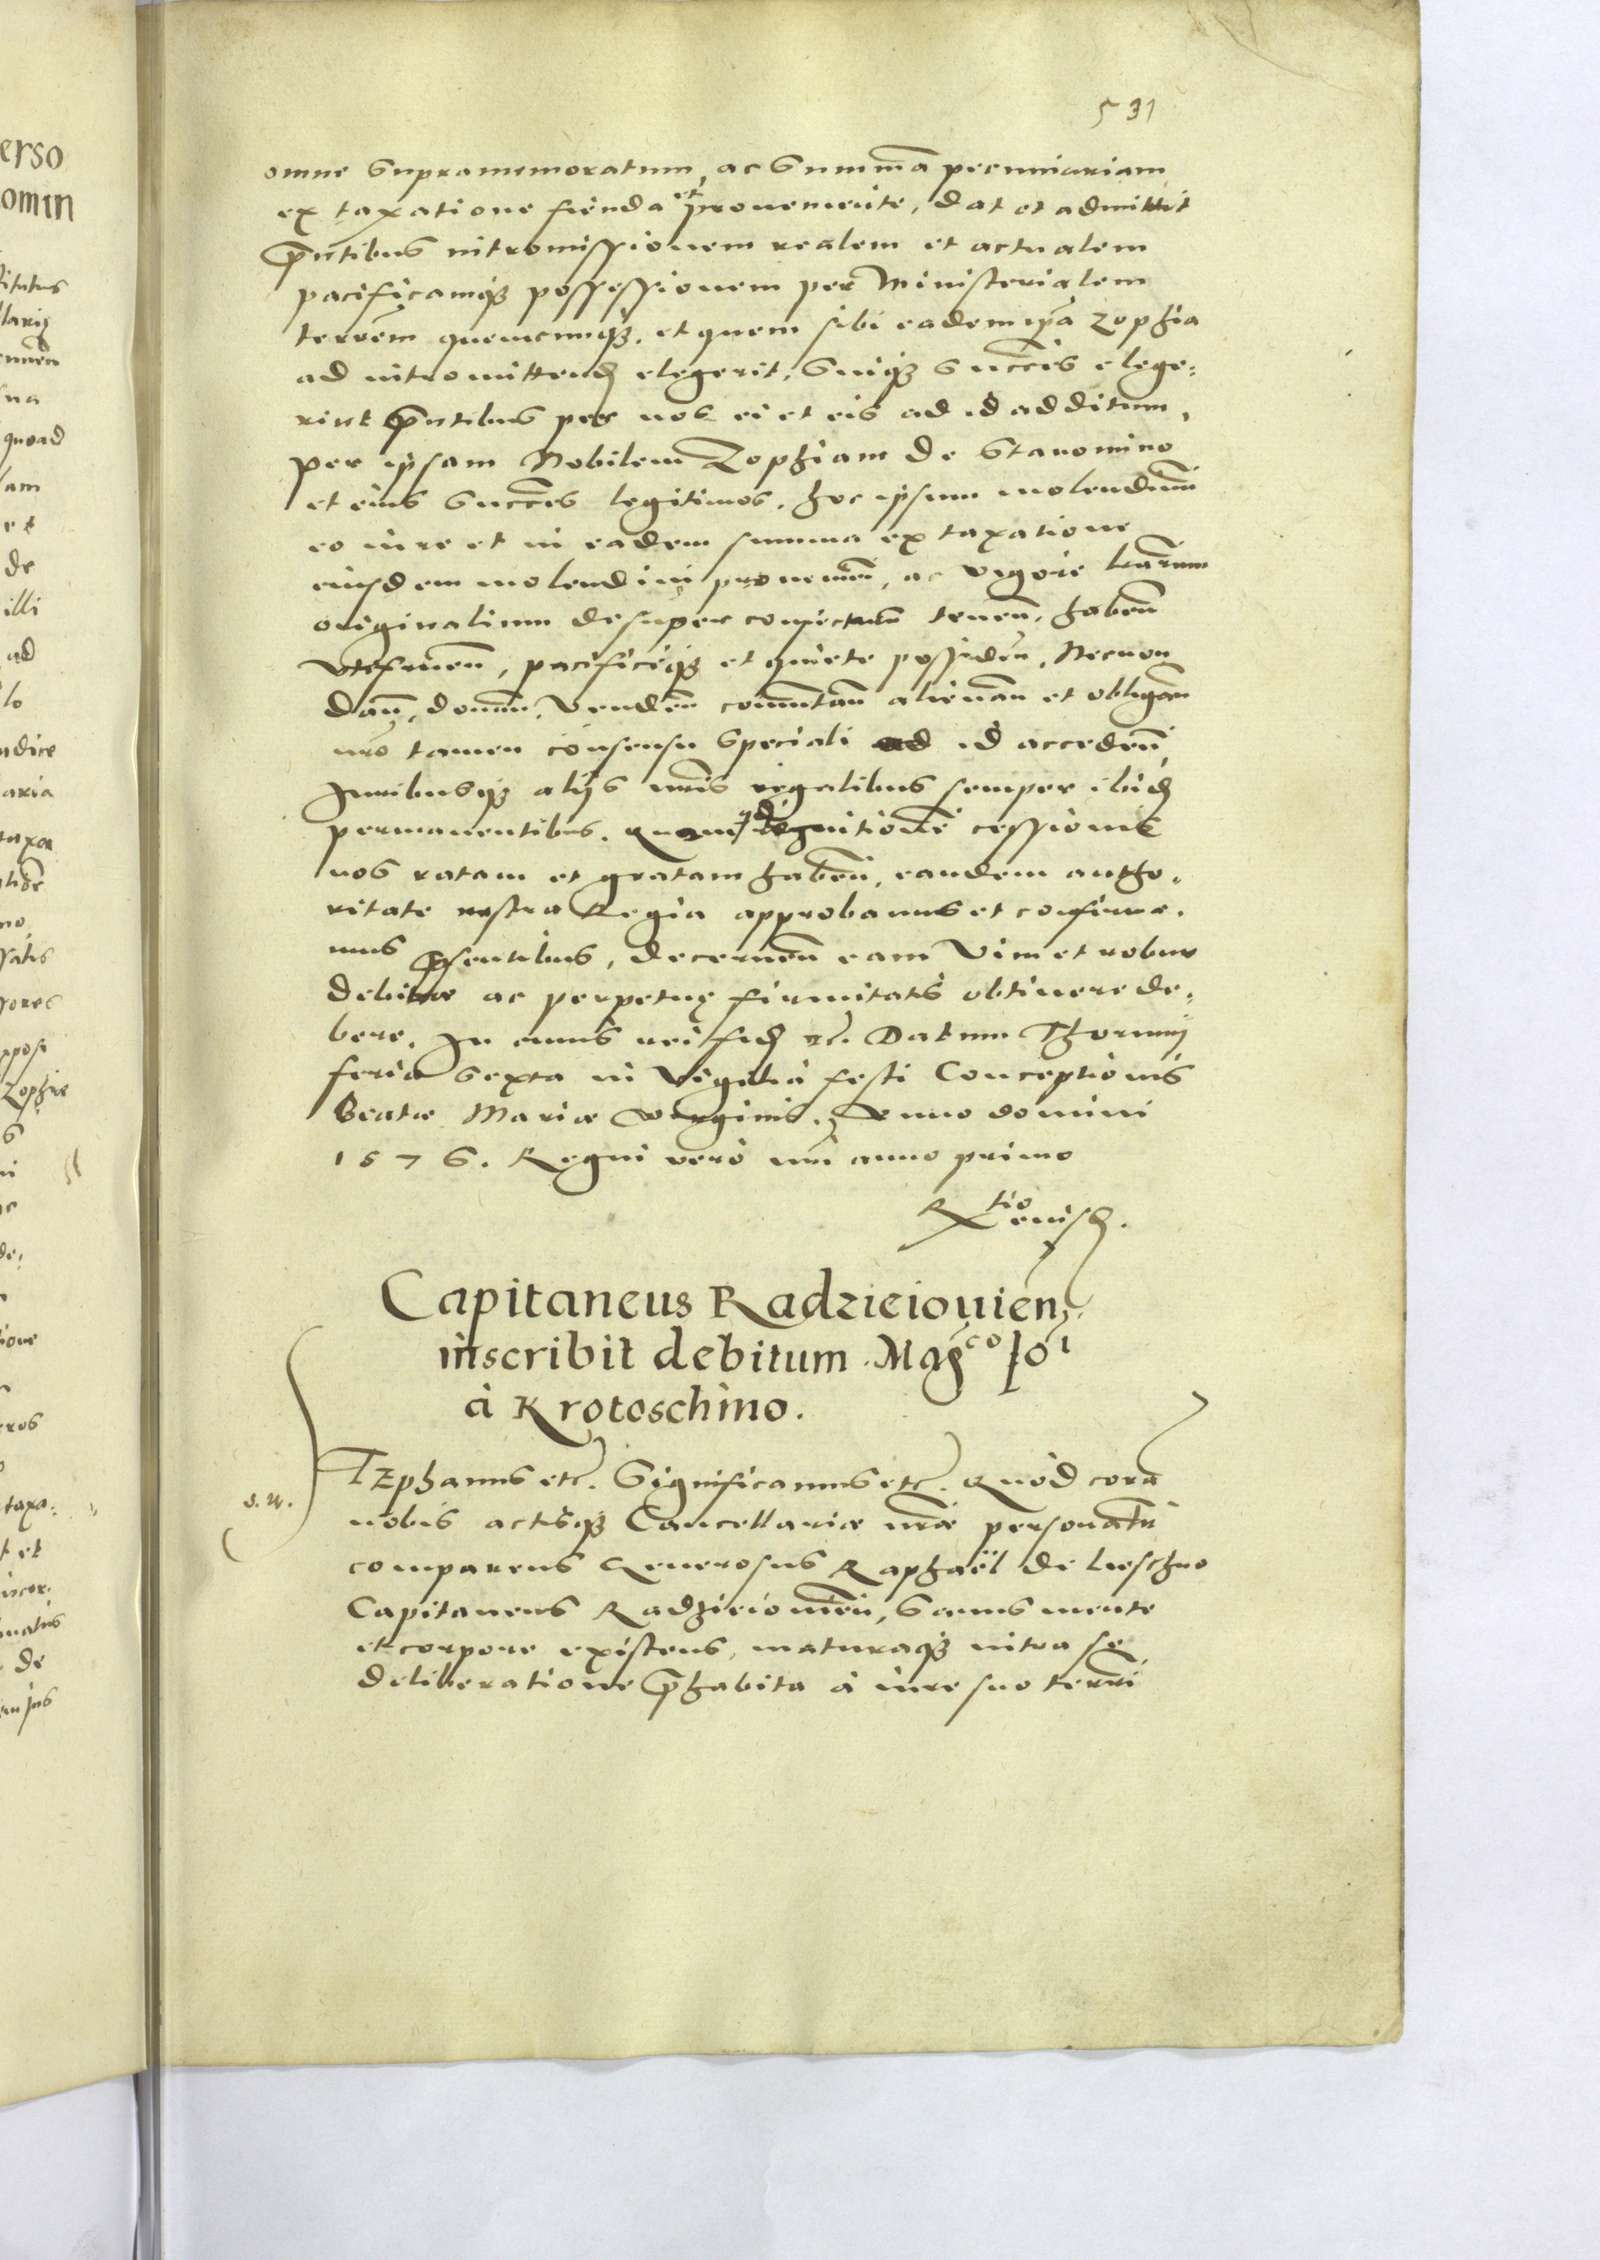 531
omne supramemoratum, ac summa͞ pecuniariam
ex taxatione fienda et proueniente, dat et admittit
p͞ntibus intromissionem realem et actualem
pacificamq₃ possessionem per Ministerialem
terre͞m quemcunq₃, et quem sibi eadem ip͞a Zophia
ad intromittend elegerit, suiq₃ succ͞es elege:
rint p͞ntibus per nos ei et eis ad id additum,
per ipsam Nobilem Zophiam de Stanomino
et eius succ͞es legitimos, hoc ipsum molendinu͞
eo iure et in eadem summa ex taxatione
eiusdem molendini prouenien͞, ac vigore l͞rarum
originalium desuper confectaru͞ tenen͞, haben͞
vtifruen͞, pacificeq₃ et quiete possiden͞, Necnon
dan͞, donan͞, venden͞ commutan͞ alienan͞ et obligan͞
n͞ro tamen consensu speciali ad id acceden͞,
Iuribusq₃ alijs n͞ris regalibus semper ibid
permanentibus. Quam quid͞ recognitione͞ cessionis
nos ratam et gratam haben͞, eandem autho:
ritate nostra Regia approbamus et confirma:
mus p͞sentibus, decernen͞ eam vim et robur
debitæ ac perpetuę firmitatis obtinere de:
bere. In cuius rei fid etc. Datum Thorunij
feria sexta in vigilia festi Conceptionis
Beatæ Mariæ virginis, Anno domini
1576. Regni vero n͞ri anno primo
R͞tio eiusd.
Capitaneus Radzieiouien͞.
inscribit debitum Mag͞co Jo͞i
à Krotoschino.
s. n.
STephanus etc. Significamus etc. Quod cora͞
nobis actisq₃ Cancellariæ n͞ræ personal͞r
comparens Generosus Raphaël de Leschno
Capitaneus Radzieiouien͞, sanus mente
et corpore existens, maturaq₃ intra se
deliberatione p͞habita à iure suo terr͞ri